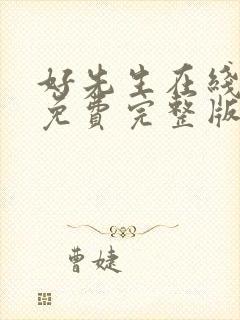 好先生在线
免费完整版
曹婕